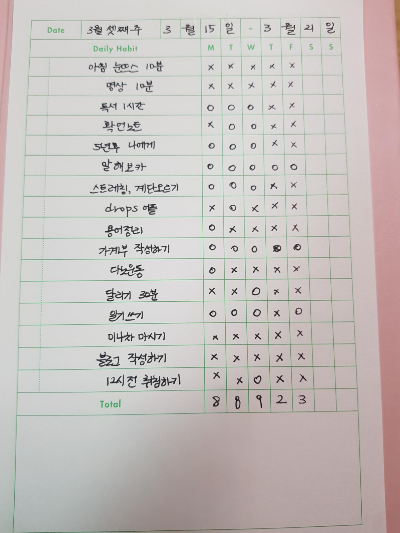 Date 3월 셋째주 3 월 15 일 - 3 월 21 일
Daily Habit M T W T F S S
아침 눈뜨고 10분 x x x x x
명상 10분 x x x x x
독서 1시간 o o o x x
확언노트 x o o x x
5년후 나에게 o o o x x
말해보카 o o o o o
스트레칭, 계단오르기 o o o x x
drops 어플 x o x x x
용어정리 o x x x x
가계부 작성하기 o o o o o
다노운동 o x x x x
달리기 30분 x x o x x
일기쓰기 o o o x o
미나차 마시기 x x x x x
블로그 작성하기 x x x x x
12시 전 취침하기 x x o x x
Total 8 8 9 2 3